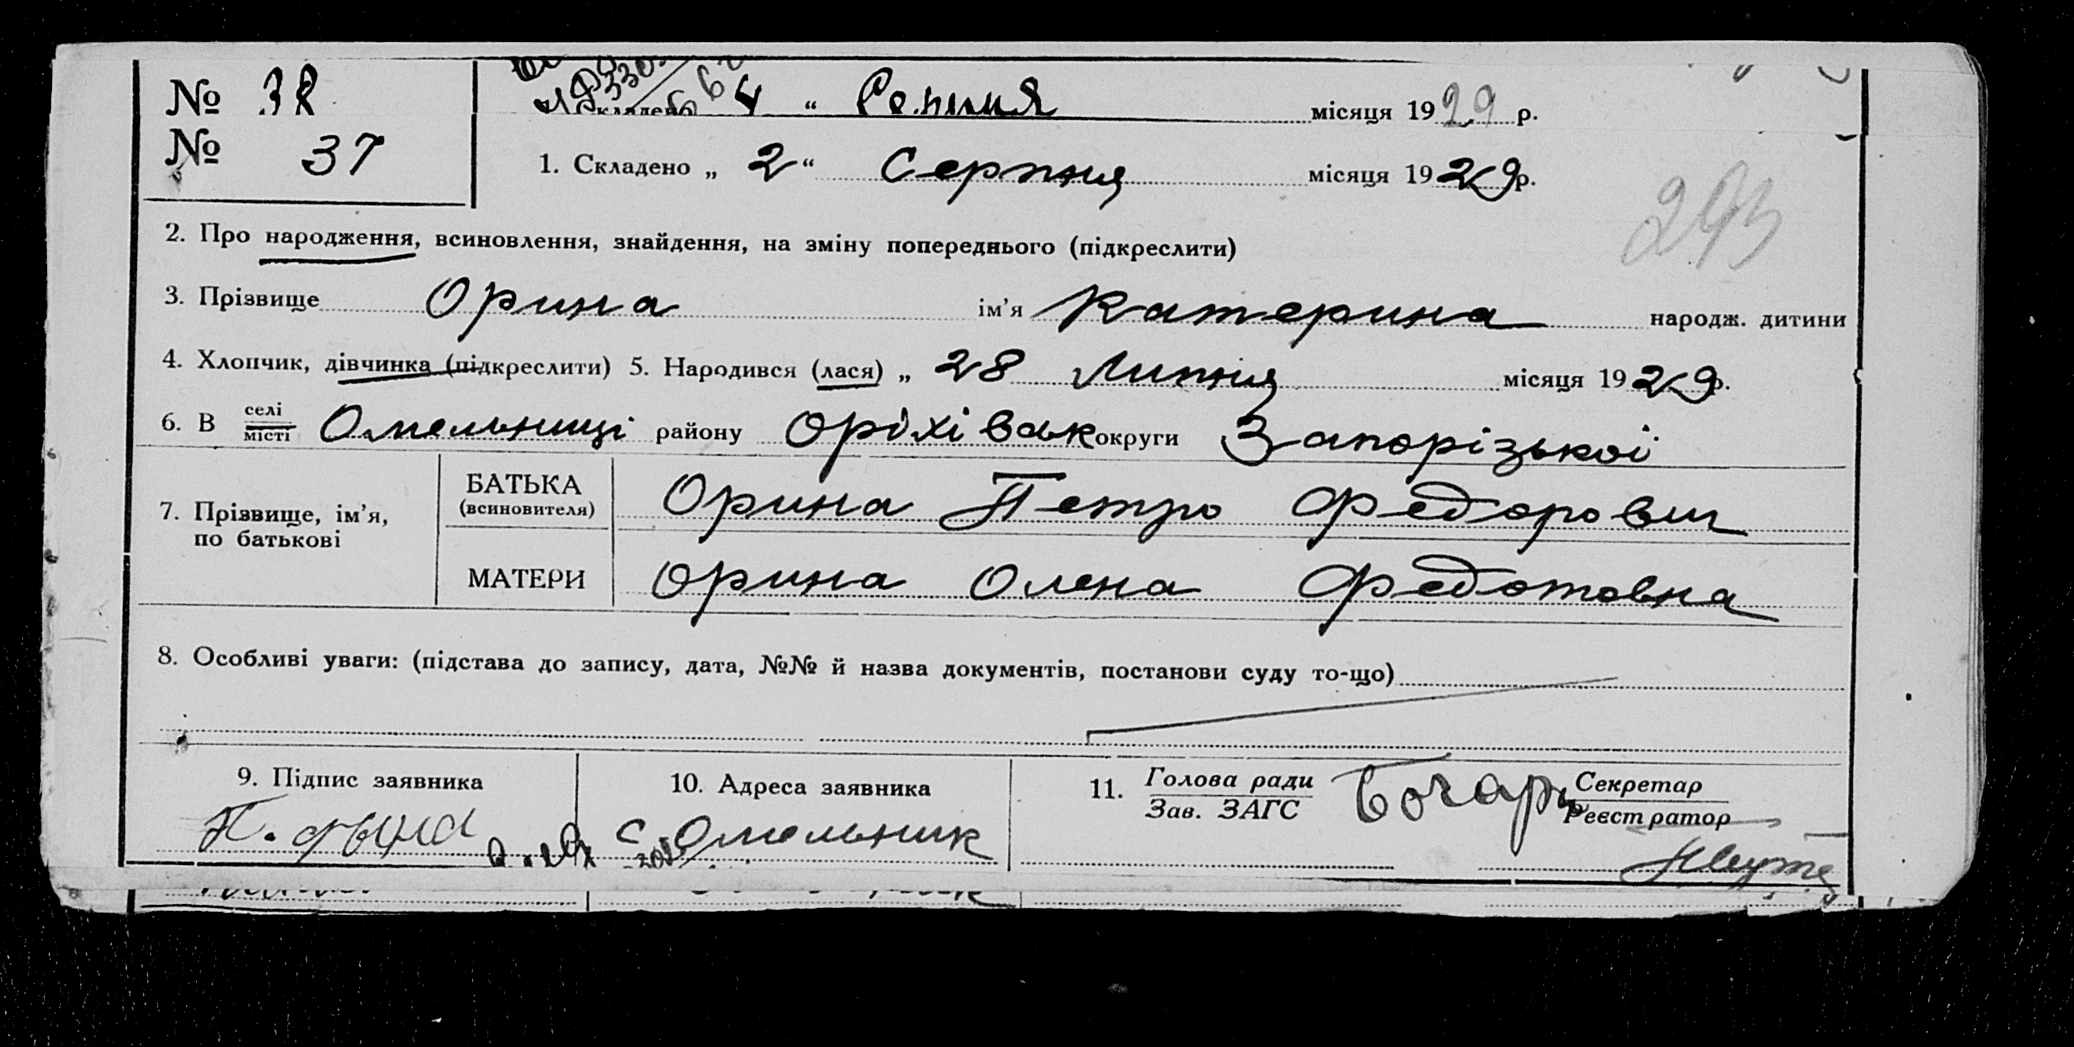 № 38 4 " Серпня місяця 1929 р.
№ 37 1. Складено „ 2 “ Серпня місяця 1929 р.
293
2. Про народження, всиновлення, знайдення, на зміну попереднього (підкреслити)
3. Прізвище Орина ім’я Катерина народж. дитини
4. Хлопчик, дівчинка (підкреслити) 5. Народився (лася) „ 28 Липня місяця 1929 р.
6. В селі місті Омельниці району Оріхівськ округи Запорізької
7. Прізвище, ім’я, по батькові
БАТЬКА (всиновителя) Орина Петро Федорович
МАТЕРИ Орина Олена Федотовна
8. Особливі уваги: (підстава до запису, дата, №№ й назва документів, постанови суду то-що)
9. Підпис заявника 10. Адреса заявника 11. Голова ради Секретар
Зав. ЗАГС Реєстратор
с Омельник